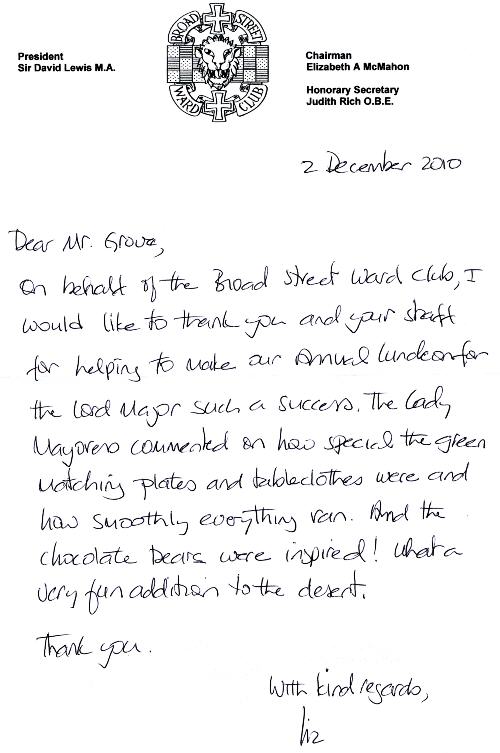 BROAD STREET
WARD CLUB
President
Sir David Lewis M.A.
Chairman
Elizabeth A McMahon
Honorary Secretary
Judith Rich O.B.E.
2 December 2010
Dear Mr. Grove,
On behalf of the Broad Street Ward Club, I
would like to thank you and your staff
for helping to make our Annual Luncheon for
the Lord Mayor such a success. The Lady
Mayoress commented on how special the green
matching plates and tableclothes were and
how smoothly everything ran. And the
chocolate bears were inspired! What a
very fun addition to the desert.
Thank you.
With kind regards,
Liz